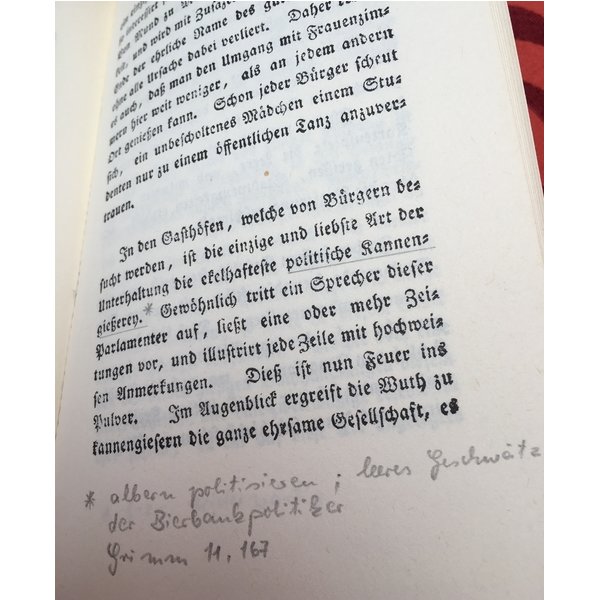 den Mund zu
sen, und wird mit Zusätzen
Ende der ehrliche Name des guten
ohne alle Ursache dabei verliert. Daher
es auch, daß man den Umgang mit Frauenzim-
mern hier weit weniger, als an jedem andern
Ort genießen kann. Schon jeder Bürger scheut
sich, ein unbescholtenes Mädchen einem Stu-
denten nur zu einem öffentlichen Tanz anzuver-
trauen.
In den Gasthöfen, welche von Bürgern be-
sucht werden, ist die einzige und liebste Art der
Unterhaltung die ekelhafteste politische Kannen-
gießerey.* Gewöhnlich tritt ein Sprecher dieser
Parlamenter auf, ließt eine oder mehr Zei-
tungen vor, und illustrirt jede Zeile mit hochwei-
sen Anmerkungen. Dieß ist nun Feuer ins
Pulver. Im Augenblick ergreift die Wuth zu
kannengiesern die ganze ehrsame Gesellschaft, es
* albern politisieren ; leeres Geschwätz
der Bierbankpolitiker
Grimm 11, 167